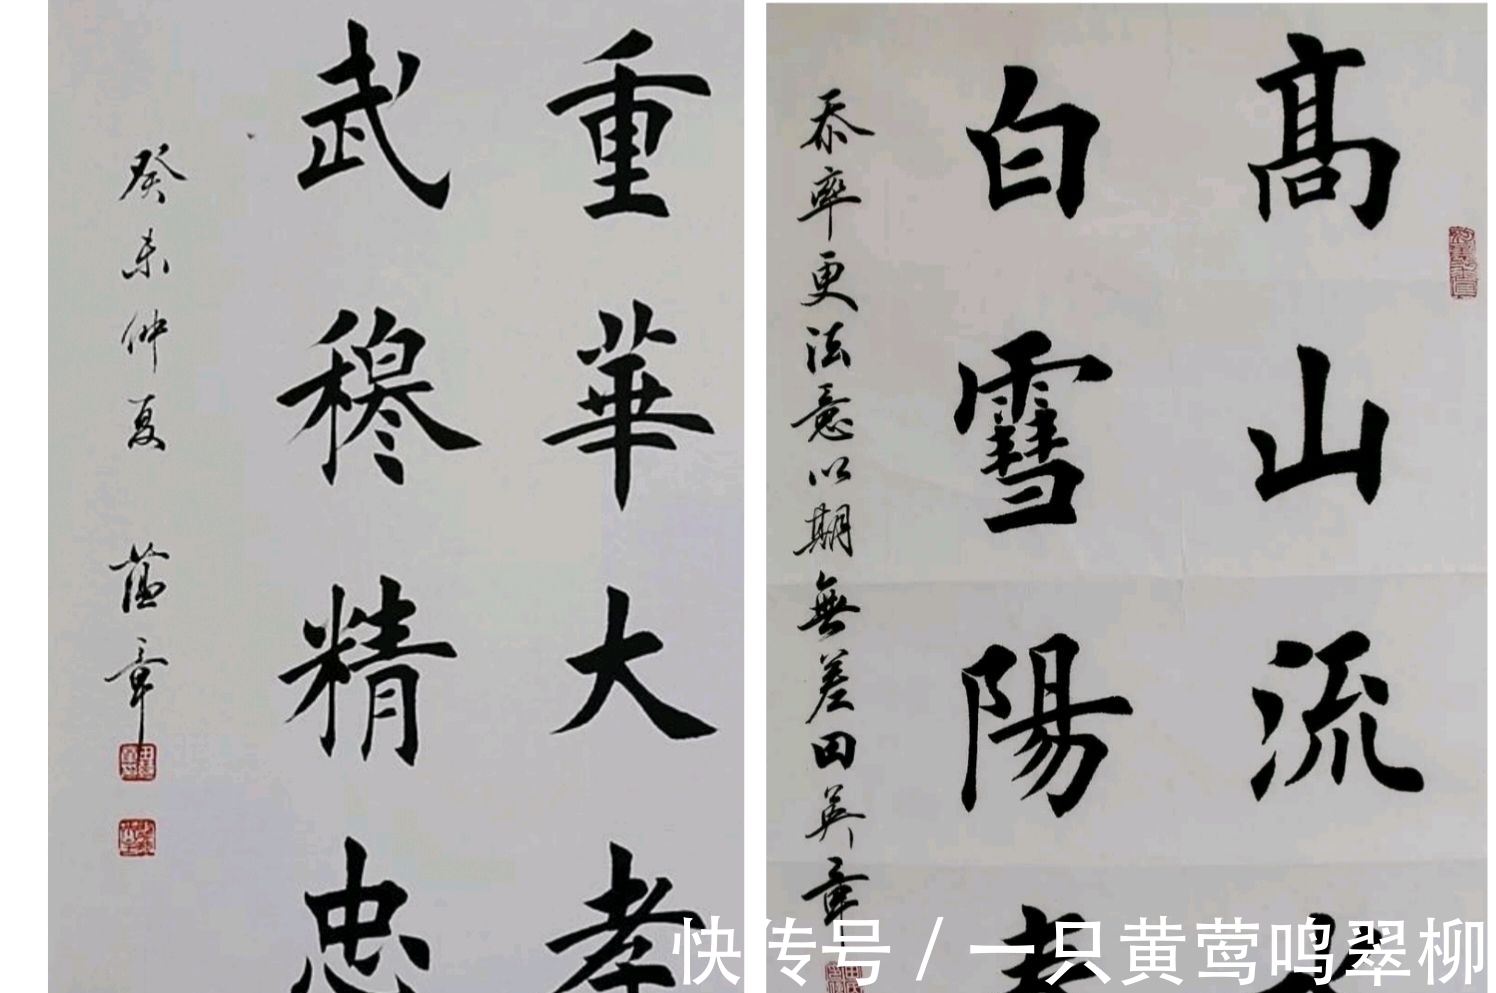 重華大孝
武穆精忠
癸未仲夏 薀章
髙山流
白雪陽
忝率更法意以期無差田英章
快传号 / 一只黄莺鸣翠柳